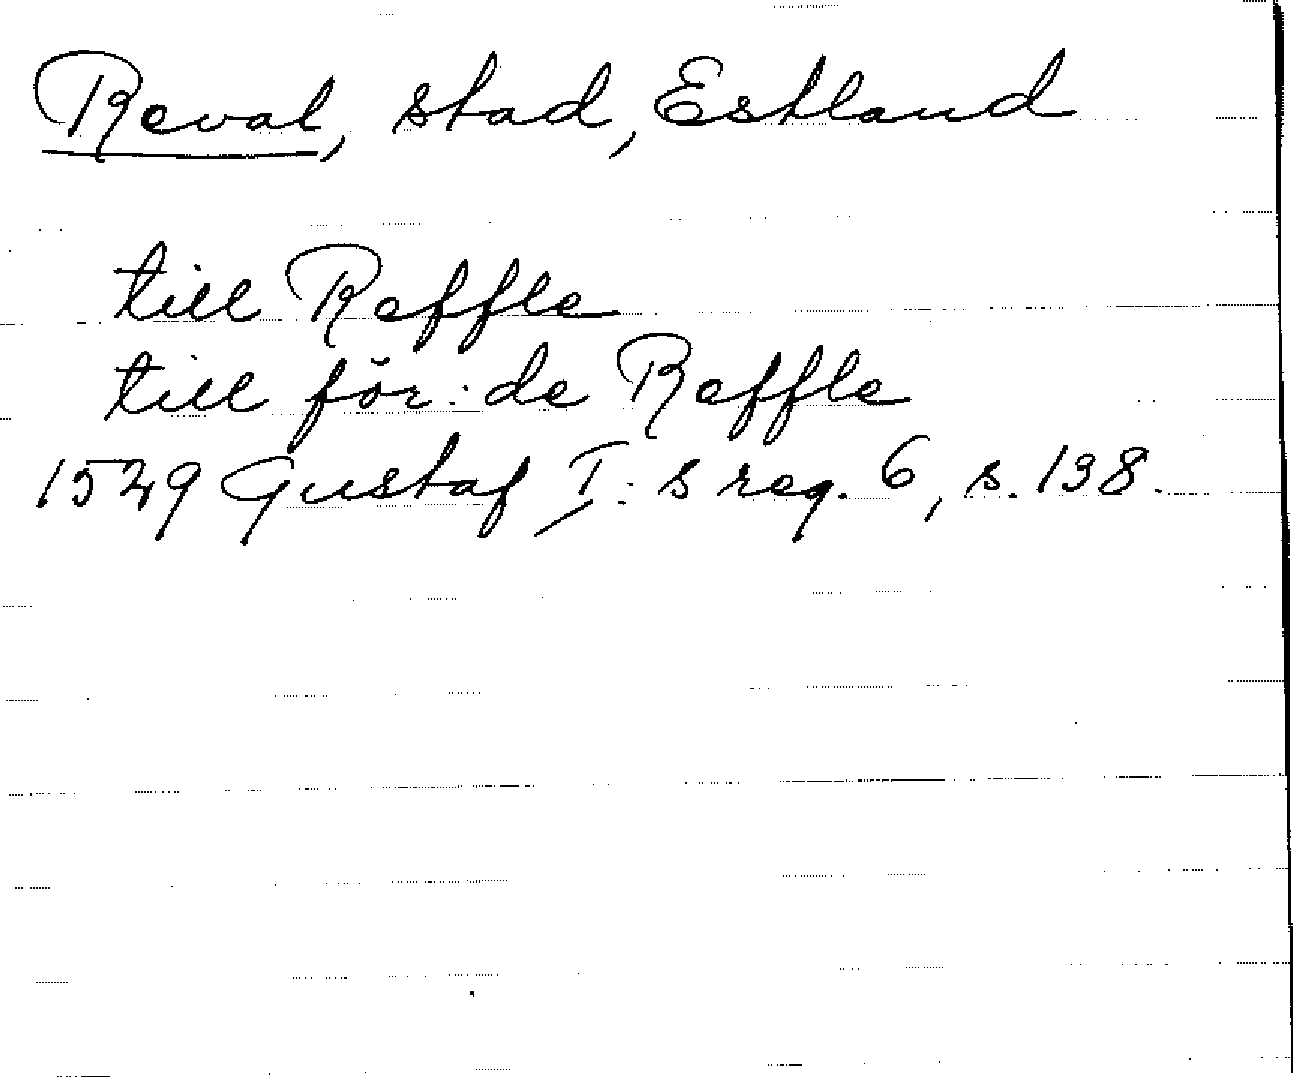 Reval, stad, Estland
till Reffle
till för:de Reffle
1529 Gustaf I:s reg. 6, s. 138.